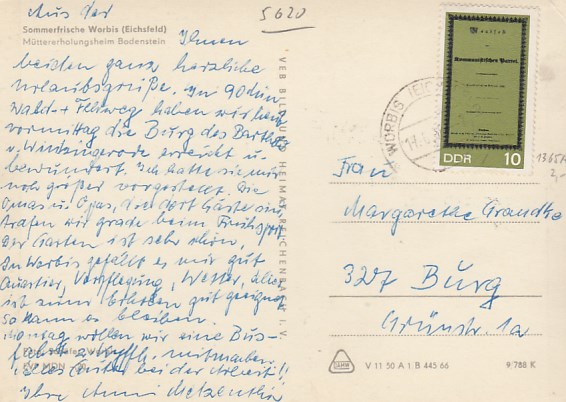 Aus der
5620
Sommerfrische Worbis (Eichsfeld)
Müttererholungsheim Bodenstein
Ihnen
beiden ganz herzliche
Urlaubsgrüße. In 90 Min
Wald- + Feldweg haben wir heut
vormittag die Burg des Barthel
v. Winzingerode erreicht u.
bewundert. Ich hatte sie mir
noch größer vorgestellt. Die
Omas u. Opas, die dort Gäste sind
trafen wir grade beim
Der Garten ist sehr schön.
In Worbis gefällt es mir gut
Quartier, Verpflegung, Wetter, alles
ist zum Erholen gut geeignet
So kann es bleiben.
Montag wollen wir eine Bus-
mitmachen.
Alles Gute bei der Arbeit!!
Ihre Anni
VEB BILD UND HEIMAT REICHENBACH i. V.
Manifest
der
Kommunistischen Partei.
DDR 10
WORBIS (EICHSF
1365A
2,-
Frau
Margarethe Grandke
327 Burg
Grünstr. 1a
V 11 50 A 1 B 445 66
9/788 K